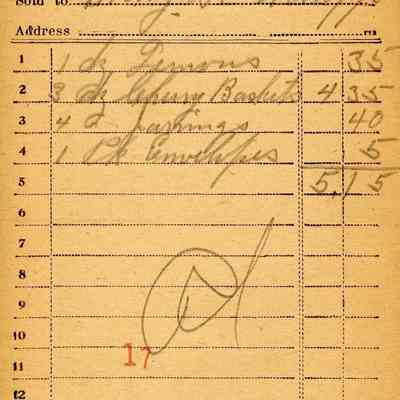 Sold to
Address
1 1 dz Lemons 35
2 3 dz Cherry Baskets 4 35
3 4 40
4 1 Pk Envelopes 5
5 5.15
6
7
8
9
10
11 17
12